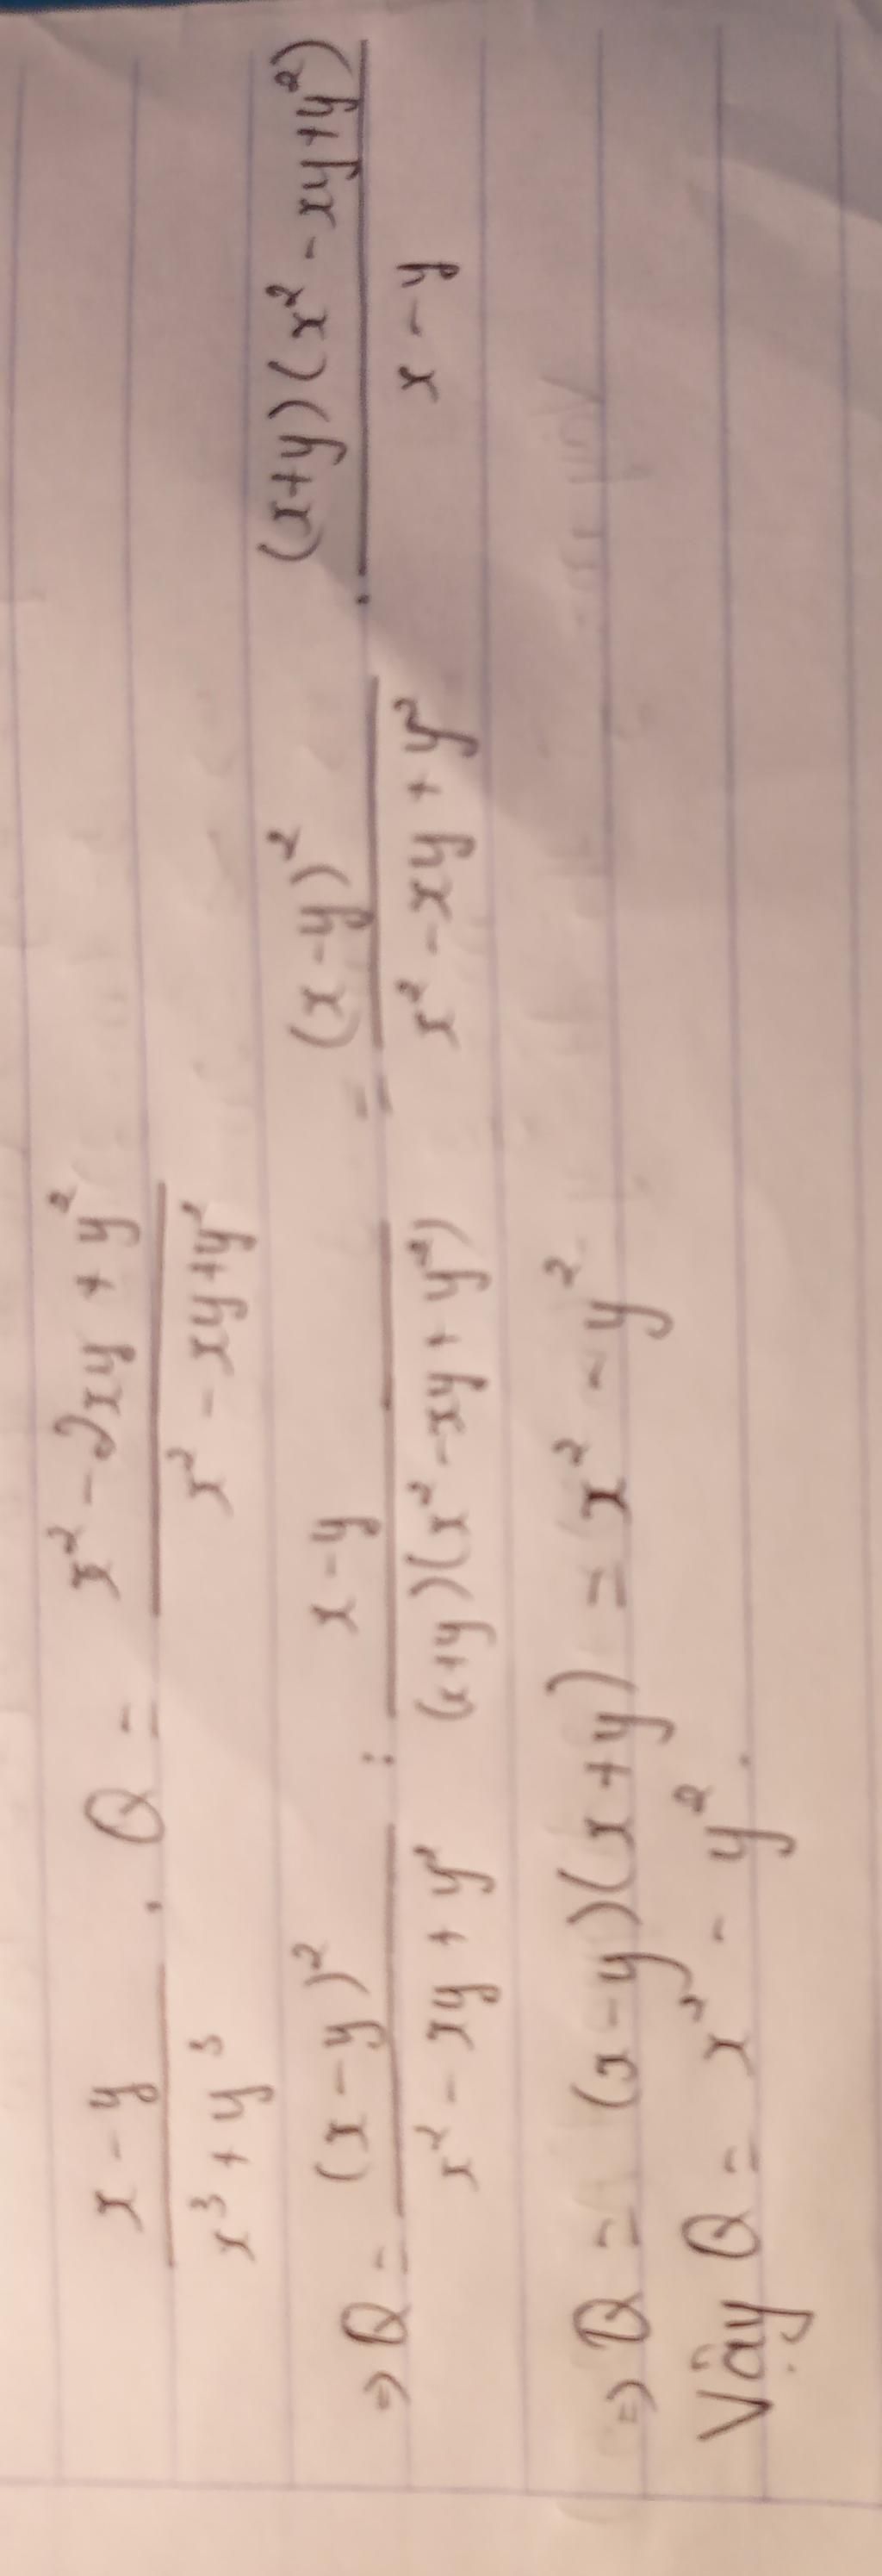 \frac{x-y}{x^3+y^3} . Q = \frac{x^2-2xy+y^2}{x^2-xy+y^2}
⇒ Q = \frac{(x-y)^2}{x^2-xy+y^2} : \frac{x-y}{(x+y)(x^2-xy+y^2)} = \frac{(x-y)^2}{x^2-xy+y^2} . \frac{(x+y)(x^2-xy+y^2)}{x-y}
⇒ Q = (x-y)(x+y) = x^2-y^2
Vậy Q = x^2-y^2.